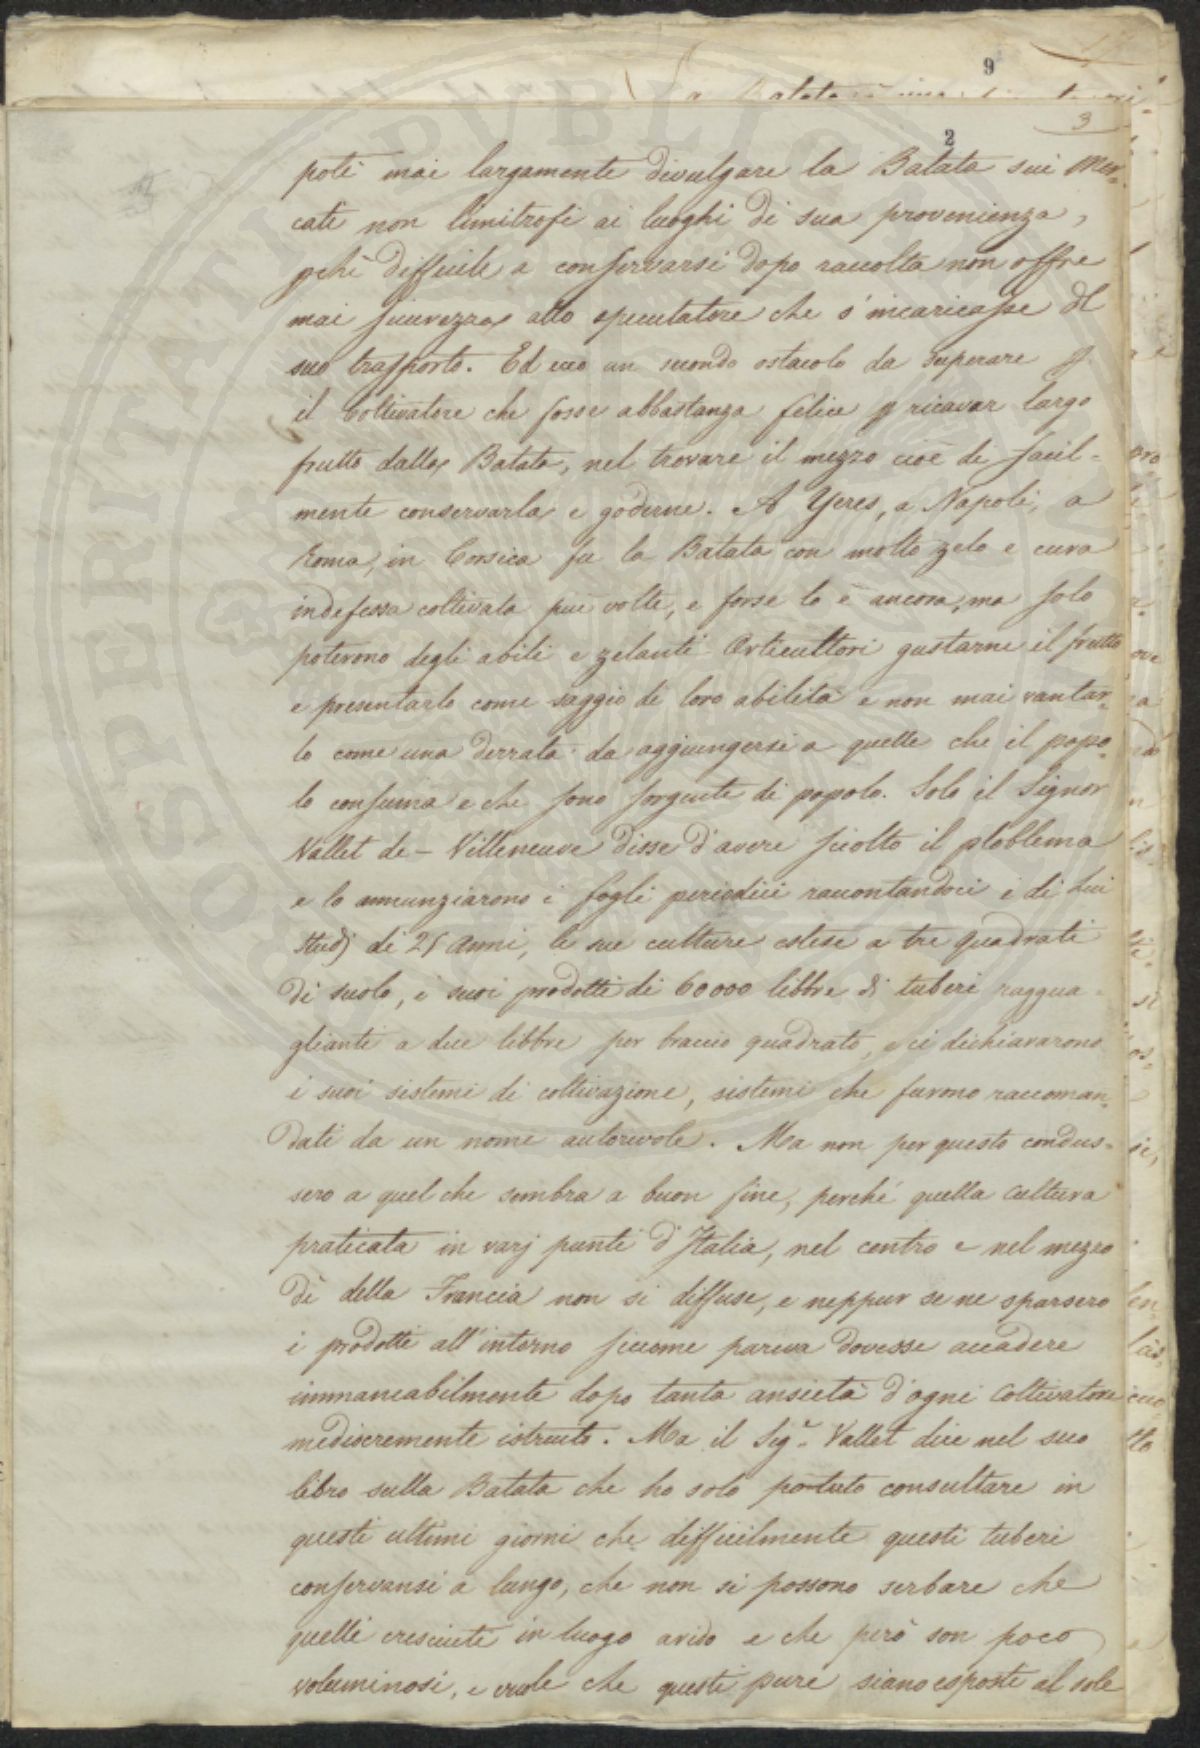 9
3
2
potè mai largamente divulgare la Batata sui Mer-
cati non limitrofi ai luoghi di sua provenienza,
pchè difficile a conservarsi dopo raccolta non offre
mai sicurezza allo speculatore che s'incaricasse del
suo trasporto. Ed ecco un secondo ostacolo da superare p
il Coltivatore che fosse abbastanza felice p ricavar largo
frutto dalla Batata, nel trovare il mezzo cioè di facil-
mente conservarla e goderne. A Yeres, a Napoli, a
Roma, in Corsica fu la Batata con molto zelo e cura
indefessa coltivata più volte, e forse lo è ancora, ma solo
poterono degli abili e zelanti Orticultori gustarne il frutto
e presentarlo come saggio di loro abilità e non mai vantar-
lo come una derrata da aggiungersi a quelle che il popo-
lo consuma e che sono sorgente di popolo. Solo il Signor
Vallet de-Villeneuve disse d'avere sciolto il ploblema
e lo annunziarono i fogli periodici raccontandoci i di Lui
studj di 25 Anni, le sue culture estese a tre quadrati
di suolo, i suoi prodotti di 60000 libbre di tuberi raggua-
glianti a due libbre per braccio quadrato, e ci dichiararono
i suoi sistemi di coltivazione, sistemi che furono raccoman-
dati da un nome autorevole. Ma non per questo condus-
sero a quel che sembra a buon fine, perché quella cultura
praticata in varj punti d'Italia, nel centro e nel mezzo
dì della Francia non si diffuse, e neppur se ne sparsero
i prodotti all'intorno siccome pareva dovesse accadere
immancabilmente dopo tanta ansietà d'ogni Coltivatore
mediocremente istruito. Ma il Sigr. Vallet dice nel suo
libro sulla Batata che ho solo potuto consultare in
questi ultimi giorni che difficilmente questi tuberi
conservansi a lungo, che non si possono serbare che
quelli cresciuti in luogo arido e che però son poco
voluminosi, e vuole che questi pure siano esposti al sole